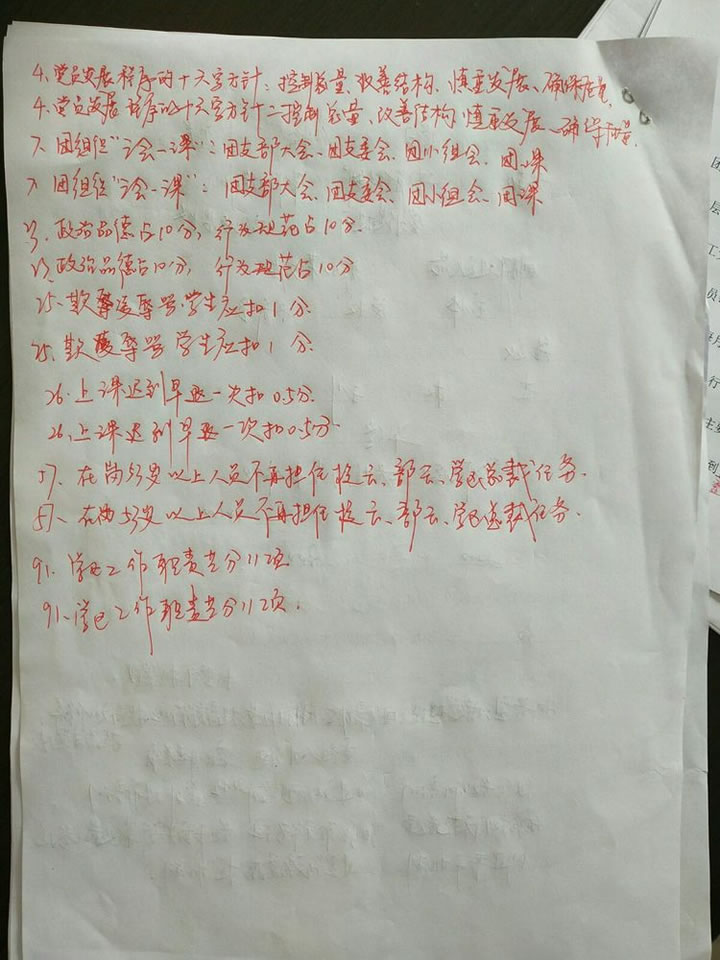 4、党员发展程序的十六字方针：控制总量、改善结构、慎重发展、确保质量。
4、党员发展程序的十六字方针：控制总量、改善结构、慎重发展、确保质量。
7、团组织“三会一课”：团支部大会、团支委会、团小组会、团课
7、团组织“三会一课”：团支部大会、团支委会、团小组会、团课
13、政治品德占10分，行为规范占10分.
13、政治品德占10分，行为规范占10分
25、欺辱凌辱 学生应扣1分.
25、欺凌辱 学生应扣1分.
26、上课迟到早退一次扣0.5分.
26、上课迟到早退一次扣0.5分
57、在岗53岁以上人员不再担任 部 任务.
57、在岗53岁以上人员不再担任 部 任务.
91、学 工作职责共分11项
91、学 工作职责共分11项.
团
层
工
员
行
主
到